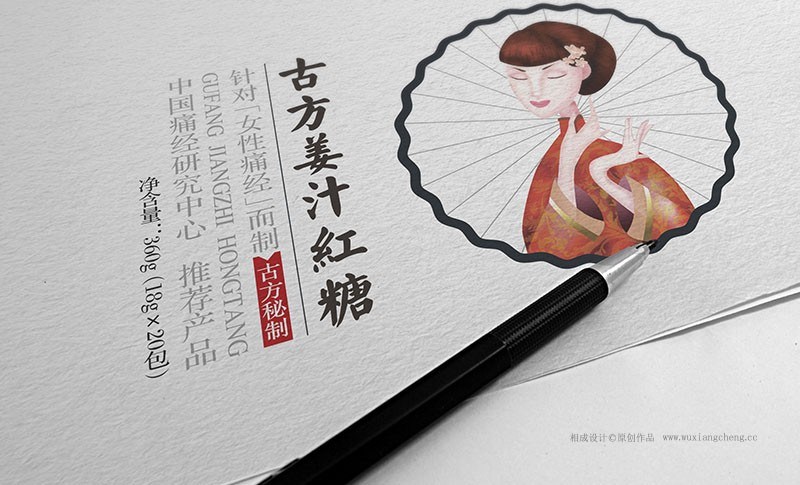 古方姜汁紅糖
针对「女性痛经」而制
古方秘制
GUFANG JIANGZHI HONGTANG
中国痛经研究中心 推荐产品
净含量:360g(18g×20包)
相成设计©原创作品 www.wuxiangcheng.cc